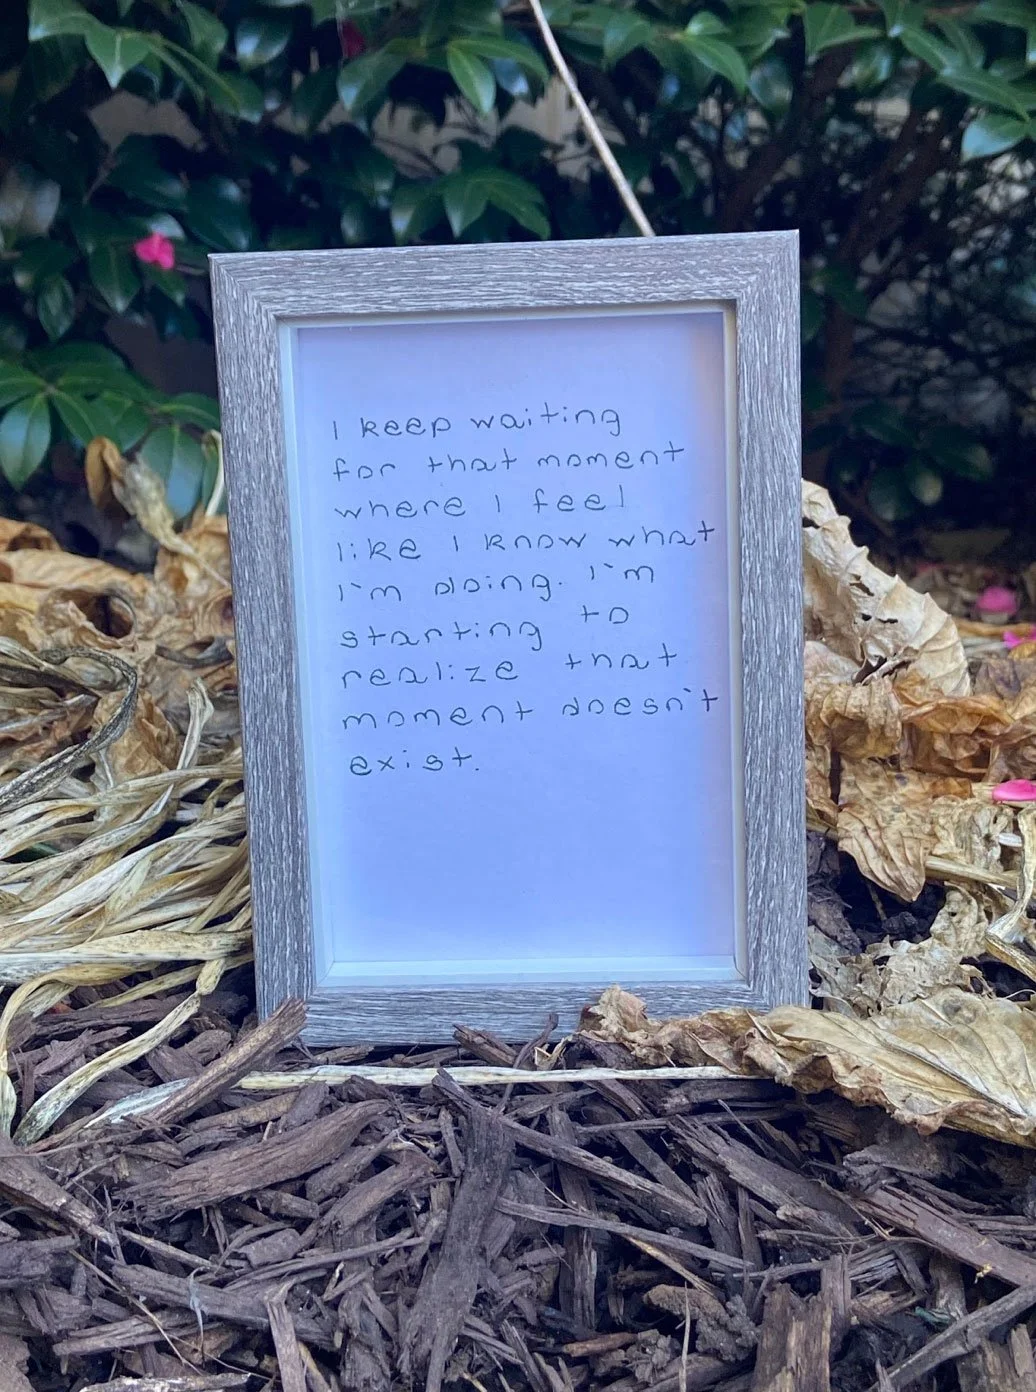 I keep waiting
for that moment
where I feel
like I know what
I'm doing. I'm
starting to
realize that
moment doesn't
exist.